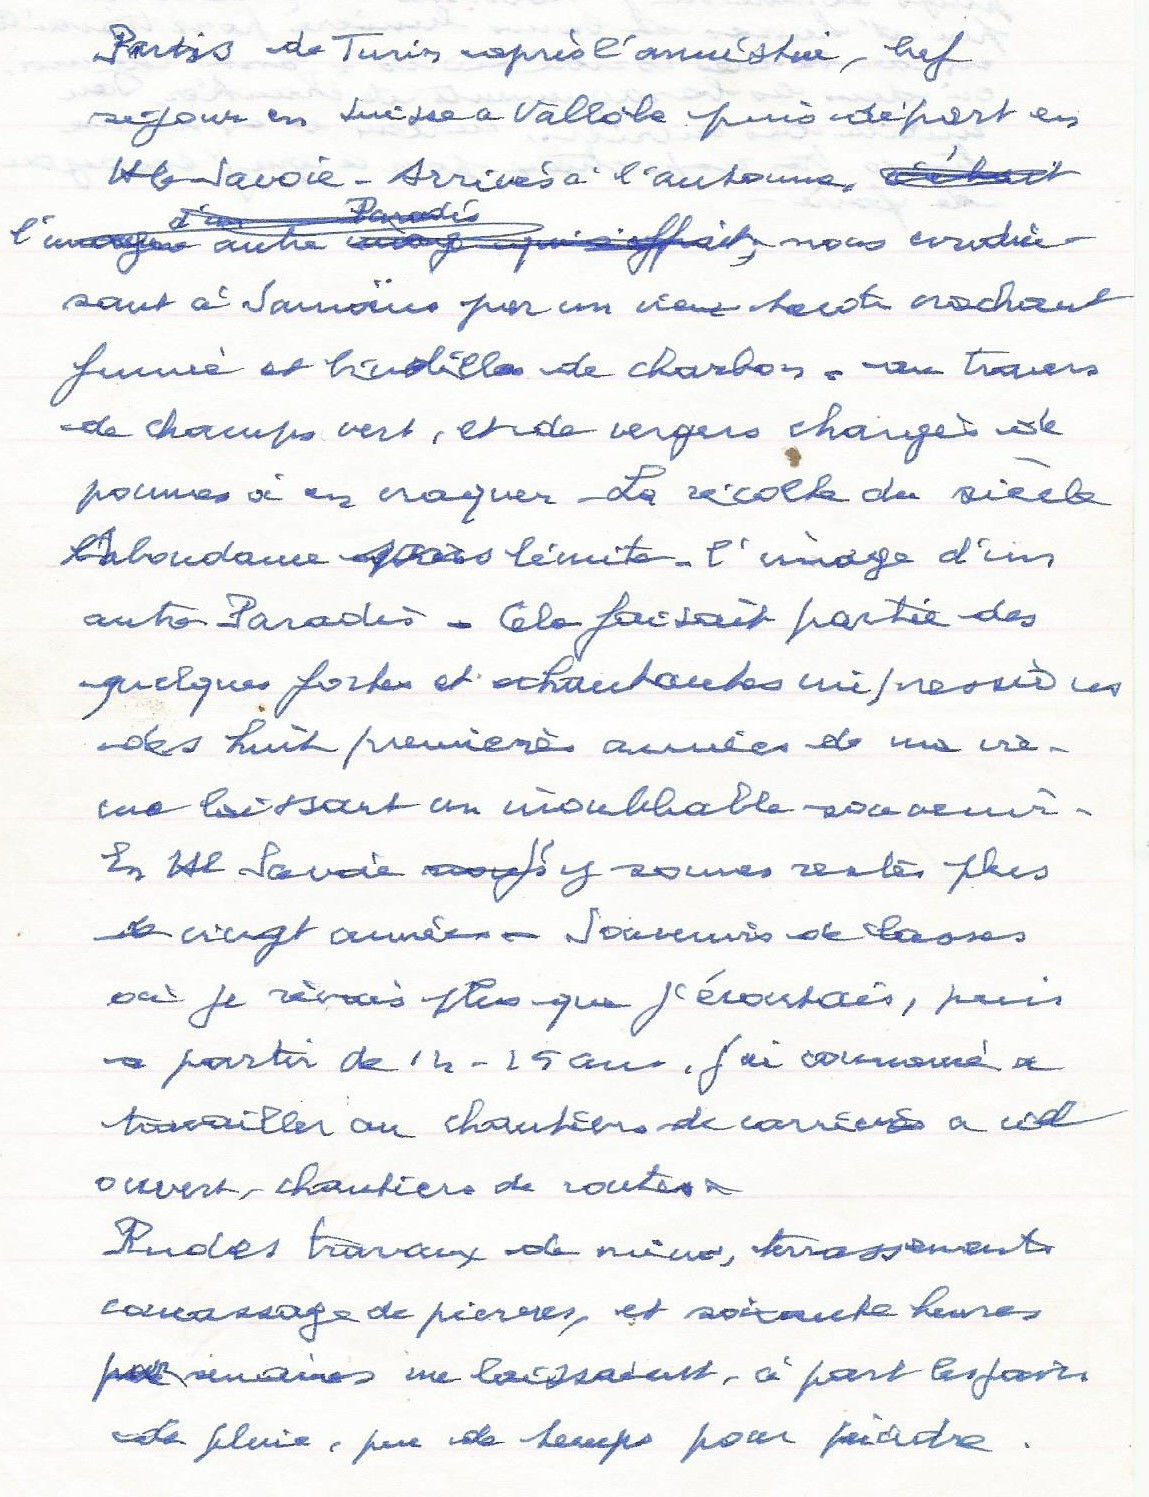 Partis de Turin après l'amnéstie, bref
séjour en Suisse a Vallorbe puis départ en
Hte Savoie - Arrivés à l'automne, c'était
d'un Paradis
l'image autre image qui s'offrait, nous condui-
sant à Samoëns par un vieux crachant
fumée et de charbon - au travers
de champs vert, et de vergers chargés de
pommes à en craquer - La récolte du siècle
L'abondance sans limite - l'image d'un
autre Paradis - Cela faisait partie des
quelques fortes et impressions
des huit premières années de ma vie -
me laissant un inoubliable souvenir -
En Hte Savoie nous y sommes restés plus
de vingt années - Souvenirs de classes
où je rêvais plus que j'écoutais, puis
a partir de 14 - 15 ans, j'ai commencé a
travailler au chantiers de carrières a ciel
ouvert, chantiers de routes -
Rudes travaux de mine, terrassements
concassage de pierres, et soixante heures
par semaines me laissaient, à part les jours
de pluie, peu de temps pour peindre.